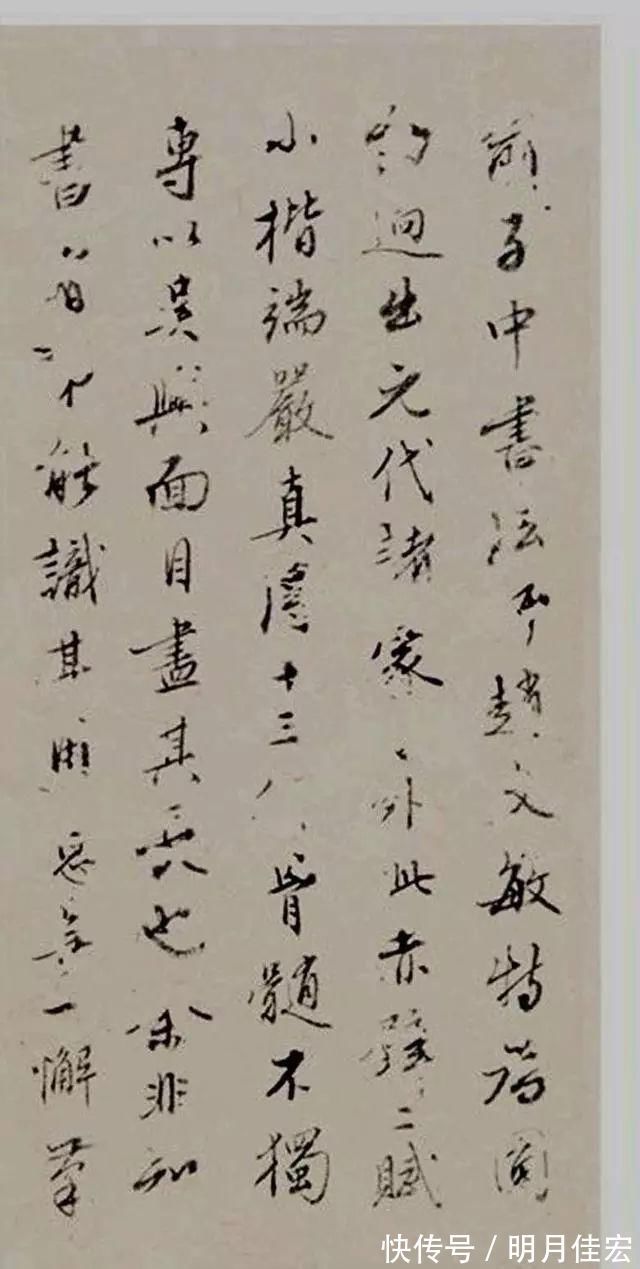 俞子中書法趙文敏特為圓
勁迥出元代諸家之外此赤壁二賦
小楷端嚴真得十三行骨髓不獨
專以吳興面目盡其長也余非知
書者不能識其用意無一懈筆
快传号/明月佳宏